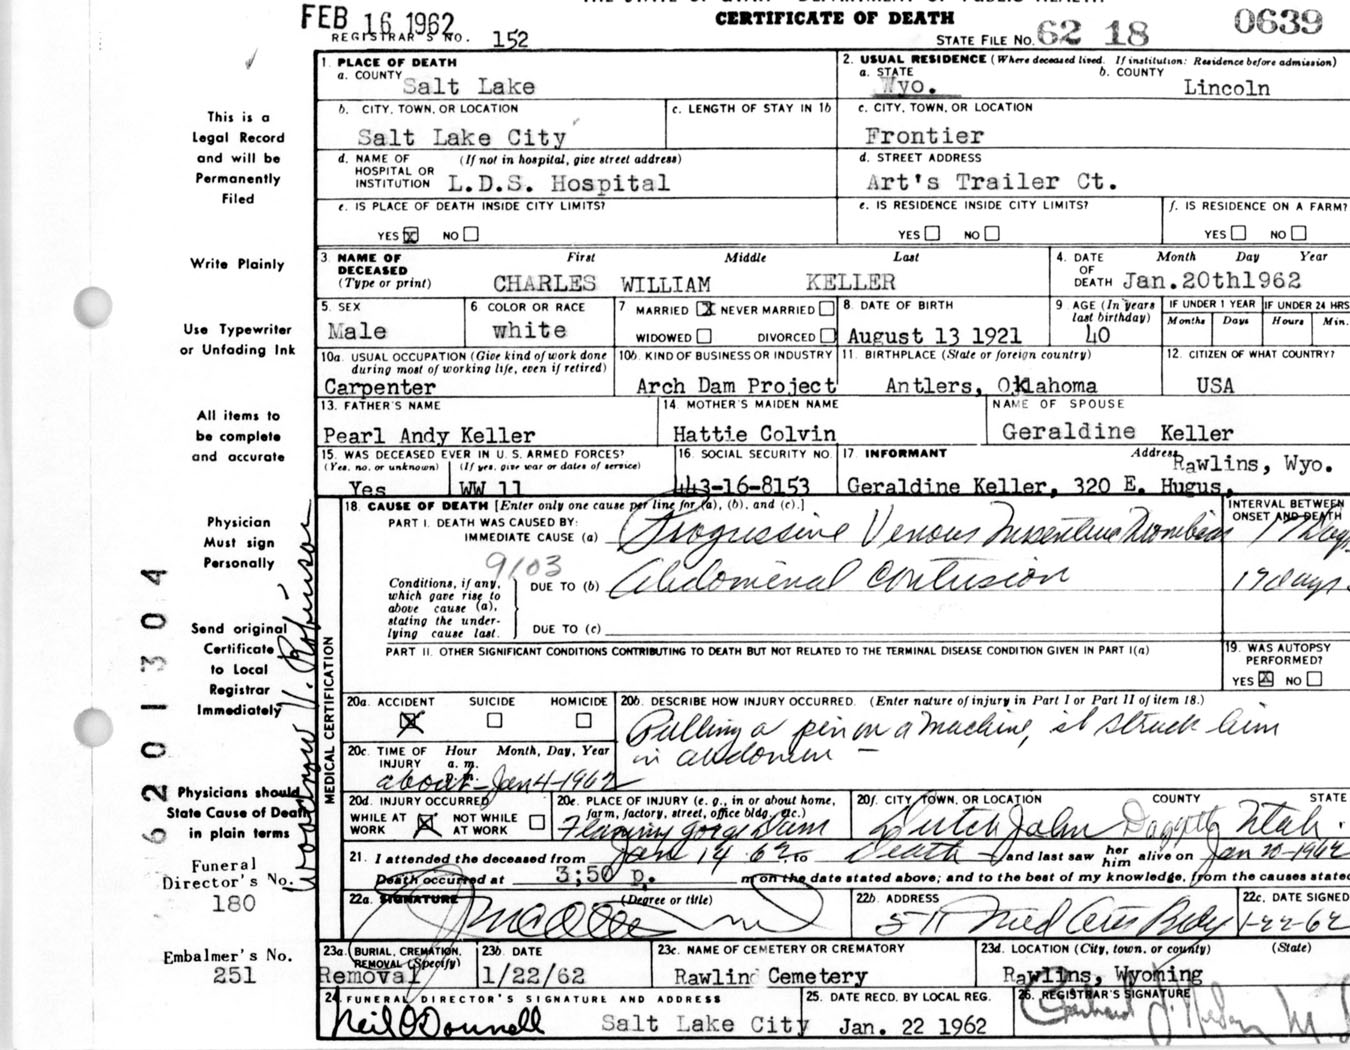 FEB 16 1962
CERTIFICATE OF DEATH
REGISTRAR'S NO. 152
STATE FILE No. 62 18 0639
1. PLACE OF DEATH
a. COUNTY Salt Lake
2. USUAL RESIDENCE (Where deceased lived. If institution: Residence before admission)
a. STATE Wyo. b. COUNTY Lincoln
b. CITY, TOWN, OR LOCATION Salt Lake City
c. LENGTH OF STAY IN 1b
c. CITY, TOWN, OR LOCATION Frontier
d. NAME OF HOSPITAL OR INSTITUTION (If not in hospital, give street address) L.D.S. Hospital
d. STREET ADDRESS Art's Trailer Ct.
e. IS PLACE OF DEATH INSIDE CITY LIMITS? YES X NO
e. IS RESIDENCE INSIDE CITY LIMITS? YES NO
f. IS RESIDENCE ON A FARM? YES NO
3. NAME OF DECEASED (Type or print) First Middle Last
CHARLES WILLIAM KELLER
4. DATE OF DEATH Month Day Year
Jan.20th1962
5. SEX Male
6. COLOR OR RACE white
7 MARRIED X NEVER MARRIED WIDOWED DIVORCED
8. DATE OF BIRTH August 13 1921
9 AGE (In years last birthday) 40
IF UNDER 1 YEAR Months Days
IF UNDER 24 HRS Hours Min.
10a. USUAL OCCUPATION (Give kind of work done during most of working life, even if retired) Carpenter
10b. KIND OF BUSINESS OR INDUSTRY Arch Dam Project
11. BIRTHPLACE (State or foreign country) Antlers, Oklahoma
12. CITIZEN OF WHAT COUNTRY? USA
13. FATHER'S NAME Pearl Andy Keller
14. MOTHER'S MAIDEN NAME Hattie Colvin
NAME OF SPOUSE Geraldine Keller
15. WAS DECEASED EVER IN U.S. ARMED FORCES? (Yes, no, or unknown) Yes (If yes, give war or dates of service) WW 11
16. SOCIAL SECURITY NO. 443-16-8153
17. INFORMANT Address Rawlins, Wyo.
Geraldine Keller, 320 E. Hugus,
MEDICAL CERTIFICATION
18. CAUSE OF DEATH [Enter only one cause per line for (a), (b), and (c).]
INTERVAL BETWEEN ONSET AND DEATH
PART I. DEATH WAS CAUSED BY:
IMMEDIATE CAUSE (a) Progressive Venous Mesenteric Thrombosis
9/03
Conditions, if any, which gave rise to above cause (a), stating the underlying cause last.
DUE TO (b) Abdominal Contusion 17 days
DUE TO (c)
PART II. OTHER SIGNIFICANT CONDITIONS CONTRIBUTING TO DEATH BUT NOT RELATED TO THE TERMINAL DISEASE CONDITION GIVEN IN PART I(a)
19. WAS AUTOPSY PERFORMED? YES X NO
20a. ACCIDENT X SUICIDE HOMICIDE
20b. DESCRIBE HOW INJURY OCCURRED. (Enter nature of injury in Part I or Part II of item 18.)
Pulling a pin on a machine, it struck him
in abdomen -
20c. TIME OF INJURY Hour a. m. p.m. Month, Day, Year
about - Jan 4-1962
20d. INJURY OCCURRED WHILE AT WORK X NOT WHILE AT WORK
20e. PLACE OF INJURY (e. g., in or about home, farm, factory, street, office bldg., etc.) Flaming Gorge Dam
20f. CITY, TOWN, OR LOCATION COUNTY STATE
Dutch John Daggett Utah.
21. I attended the deceased from Jan 14 62, to Death - and last saw her him alive on Jan 20-1962
Death occurred at 3;50 p. m on the date stated above; and to the best of my knowledge, from the causes stated
22a. SIGNATURE (Degree or title)
22b. ADDRESS
22c. DATE SIGNED 1-22-62
23a. BURIAL, CREMATION, REMOVAL (Specify) Removal
23b. DATE 1/22/62
23c. NAME OF CEMETERY OR CREMATORY Rawlins Cemetery
23d. LOCATION (City, town, or county) (State) Rawlins, Wyoming
24 FUNERAL DIRECTOR'S SIGNATURE AND ADDRESS
Neil O'Donnell Salt Lake City
25. DATE RECD. BY LOCAL REG. Jan. 22 1962
26. REGISTRAR'S SIGNATURE
This is a
Legal Record
and will be
Permanently
Filed
Write Plainly
Use Typewriter
or Unfading Ink
All items to
be complete
and accurate
Physician
Must sign
Personally
Send original
Certificate
to Local
Registrar
Immediately
Physicians should
State Cause of Death
in plain terms
Funeral
Director's No.
180
Embalmer's No.
251
6201304
Woodrow V. Robinson